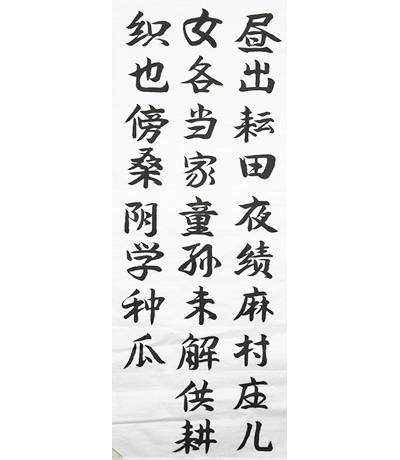 昼出耘田夜绩麻村庄儿
女各当家童孙未解供耕
织也傍桑阴学种瓜